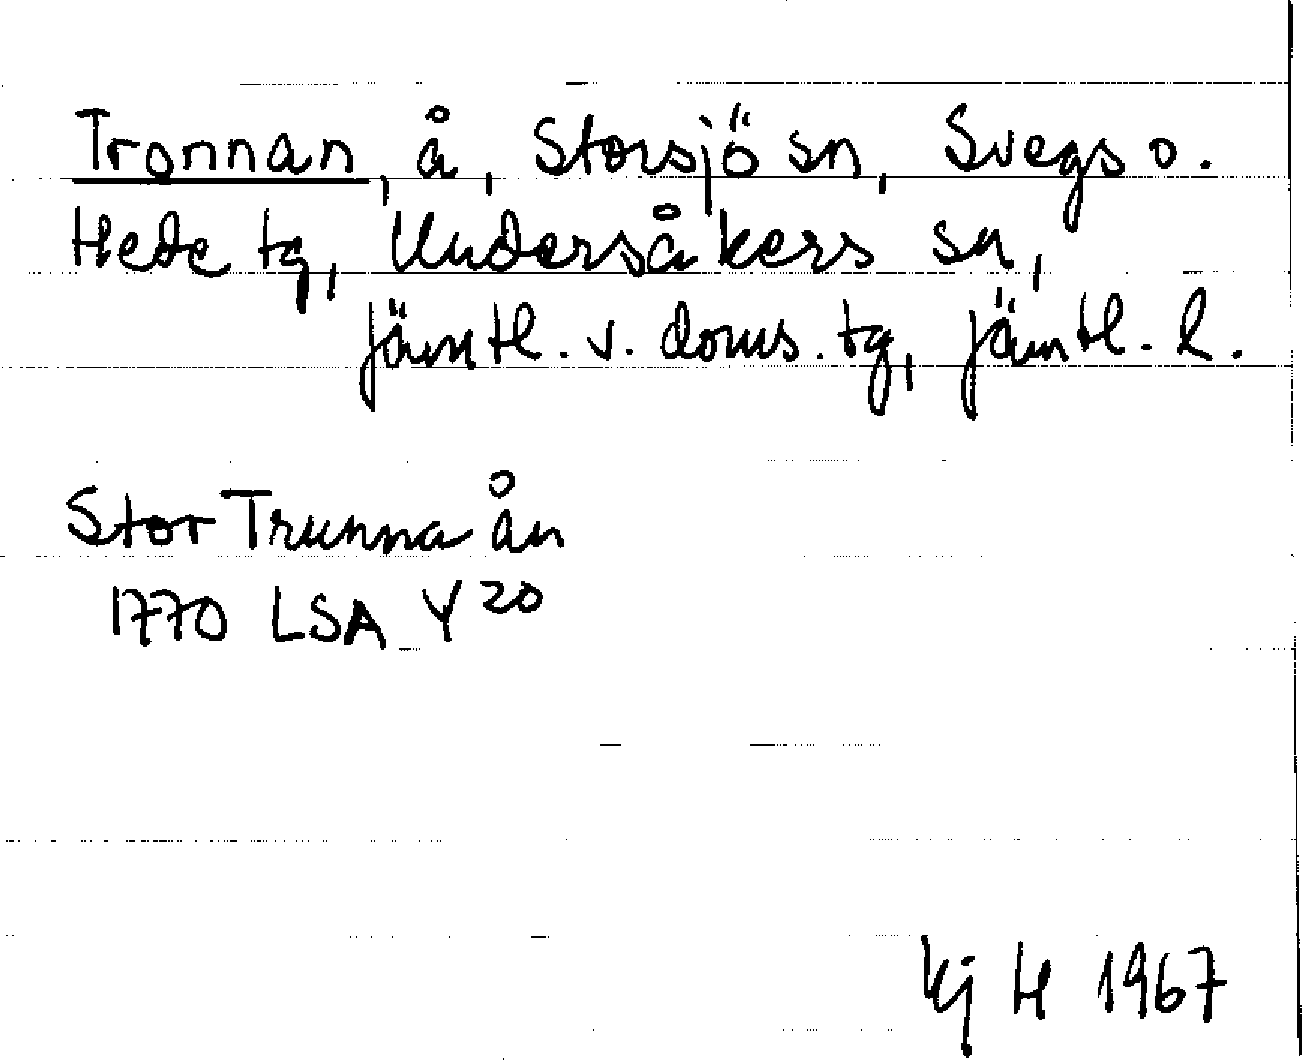 Tronnan, å, Storsjö sn, Svegs o.
Hede tg, Undersåkers sn,
Jämtl. v. doms. tg, Jämtl. l.
Stor Trunna ån
1770 LSA Y 20
Kj H 1967